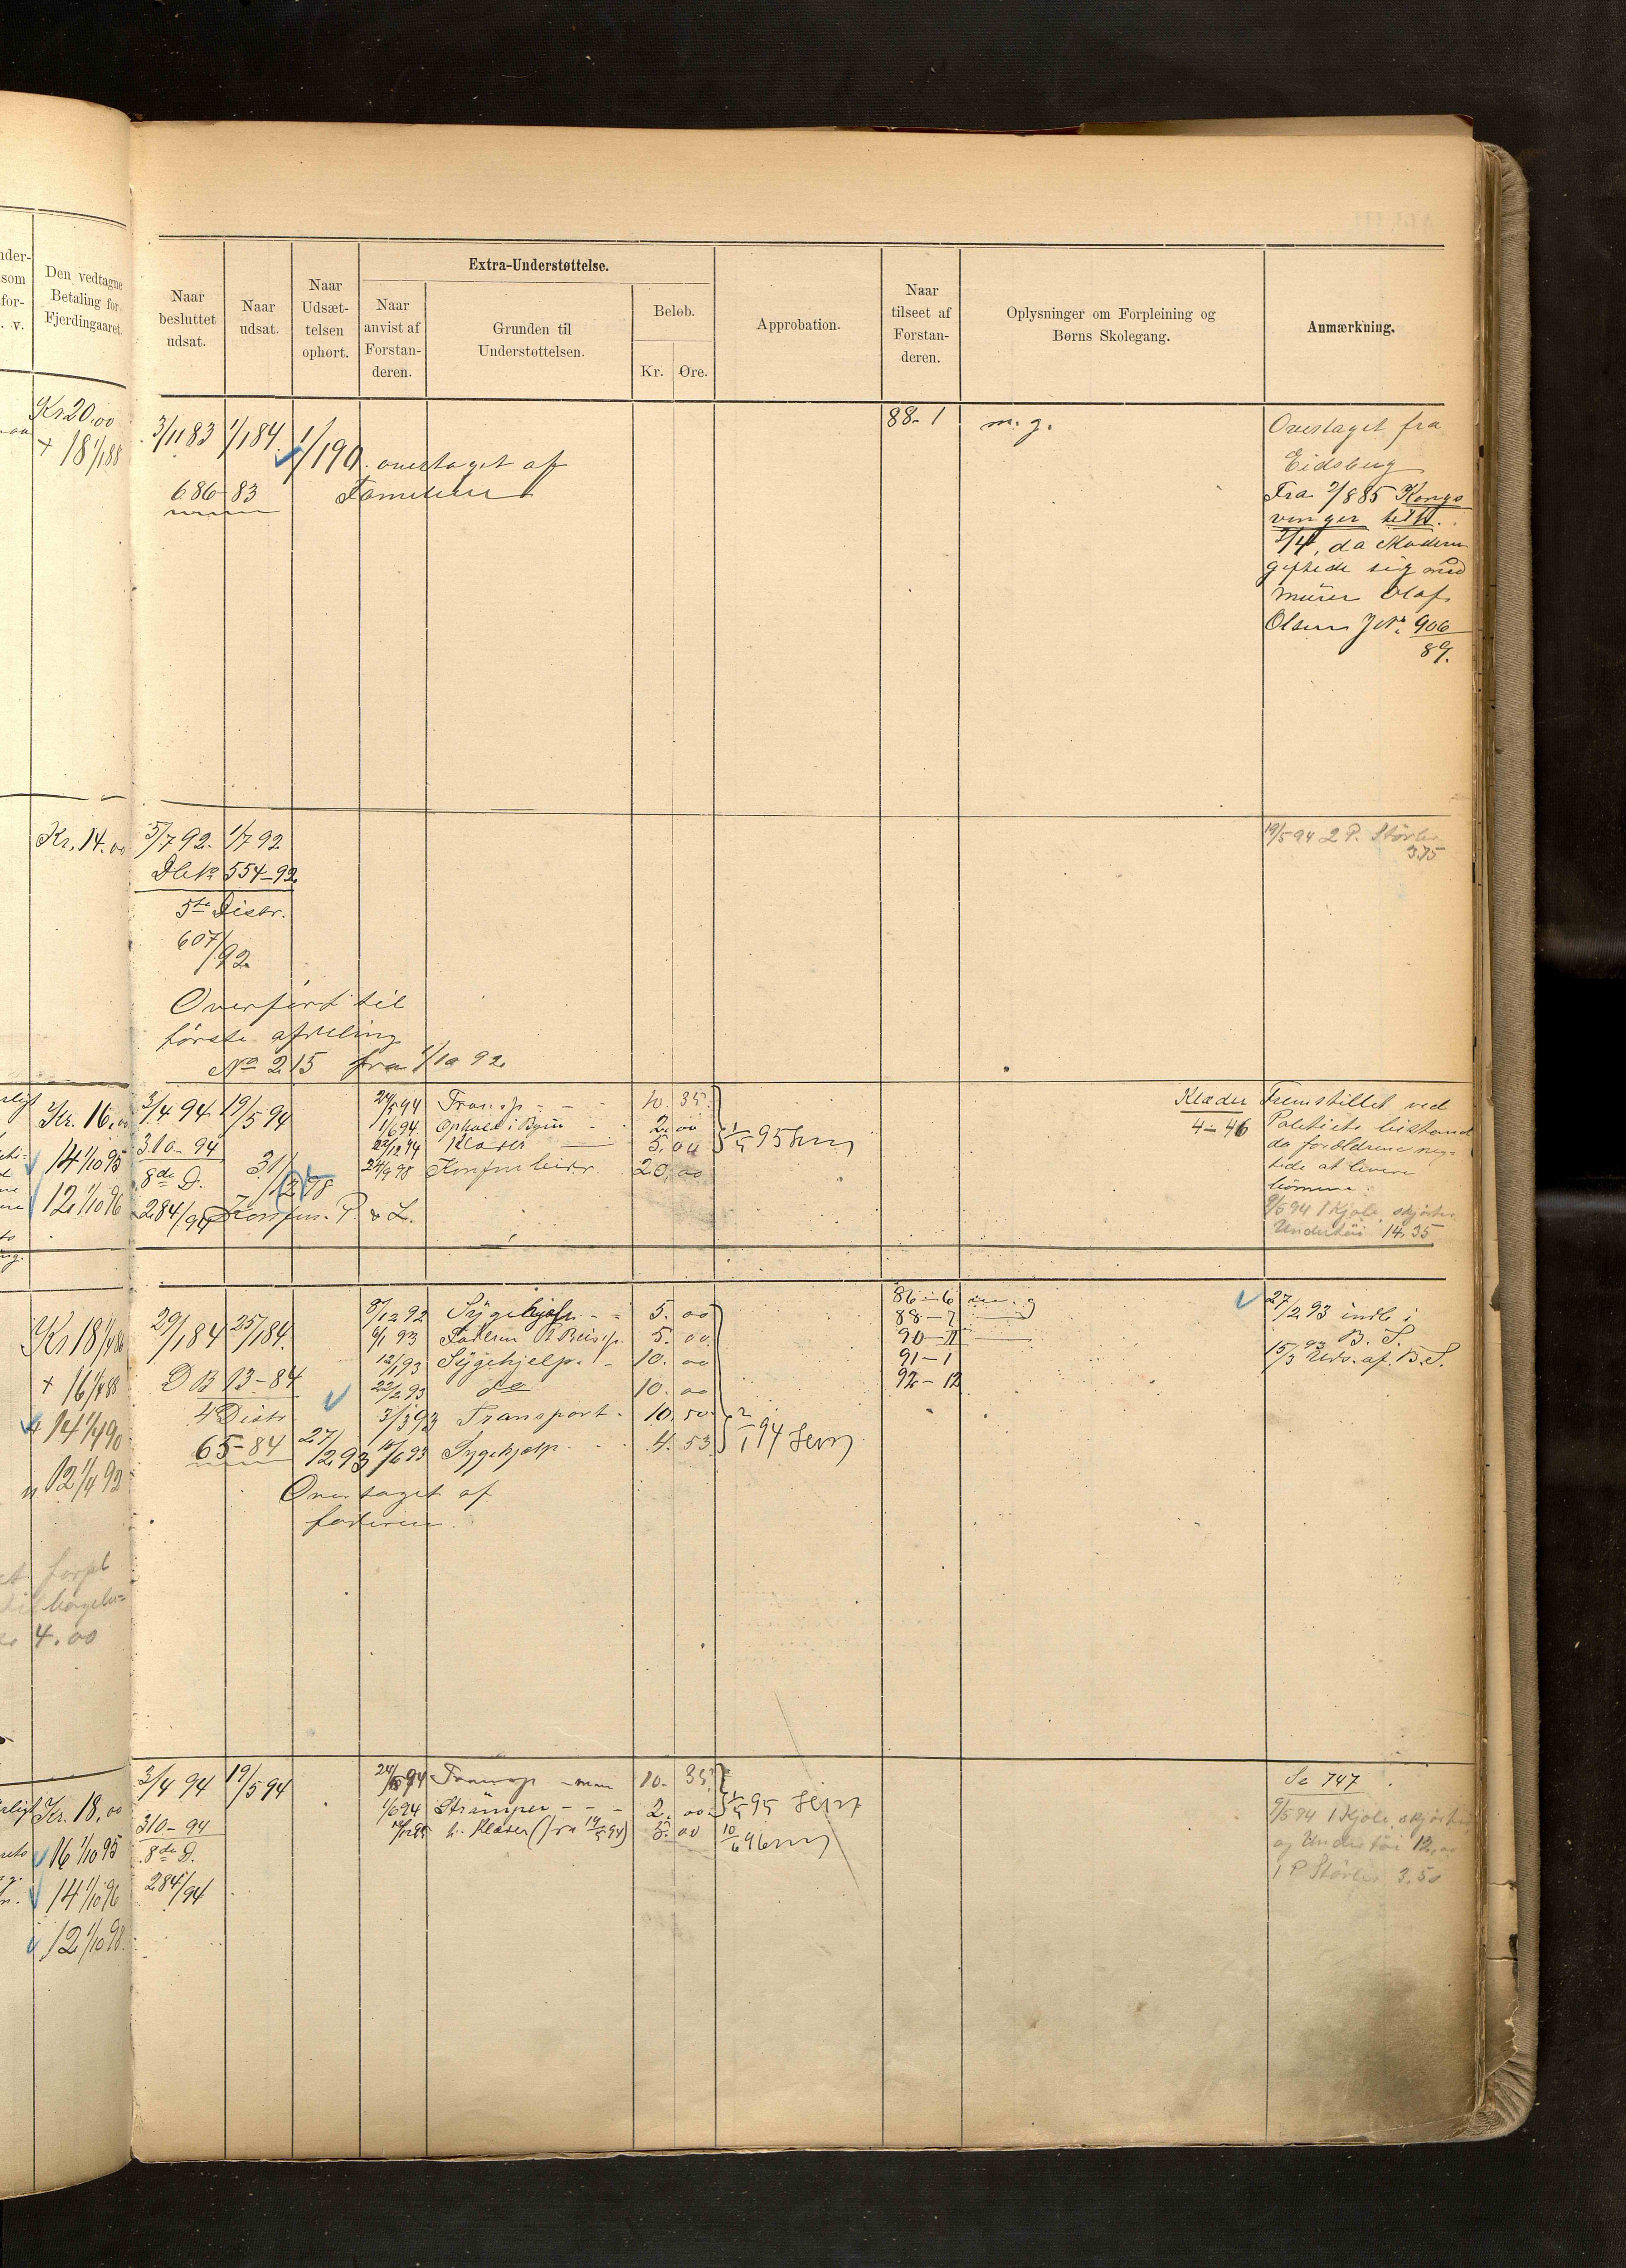 Den vedtagne
Betaling for
Fjerdingaaret.
Naar
besluttet
udsat.
Naar
udsat.
Naar
Udsæt-
telsen
ophørt.
Extra-Understøttelse.
Naar
anvist af
Forstan-
deren.
Grunden til
Understøttelsen.
Beløb.
Kr. Øre.
Approbation.
Naar
tilseet af
Forstan-
deren.
Oplysninger om Forpleining og
Børns Skolegang.
Anmærkning.
Kr 20.00
+ 18 1/1 88
3/11 83 1/1 84 1/1 90. overtaget af
Familien
686-83
88-1 m. g.
Overtaget fra
Eidsberg
Fra 2/8 85 Kongs
vinger
da Moderen
giftede sig med
murer Olaf
Olsen J.No. 906
89.
Kr. 14.00
5/7 92. 1/7 92
554-92
5te Distr.
607/92
Overført til
første afdeling
No 215 fra 1/10 92
19/5 94 2 P. Støvler
3.75
Kr. 16.00
14 1/10 95
12 1/10 96
3/4 94 19/5 94
310-94
8de D.
284/94
31/12 98
Konfirm. P. & L.
24/5 94 Transp - - 10. 35.
1/6 94 Ophold i Byen - 2.00
22/12 94 Klæder 5.00
20.00
1/5 95
Klæder
4-46
Fremstillet ved
Politiets bistand
da forældrene neg-
tede at levere
børnene.
9/5 94 1 Kjole, skjørter
Undertøi 14.35
Kr 18 1/4 86
+ 16 1/4 88
+ 14 1/4 90
12 1/4 92
29/1 84 25/1 84.
D B 13-84
4 Distr
65-84
27/2 93
Overtaget af
faderen.
8/12 92 Sygehjælp - - 5.00
6/1 93 Faderen 5.00
12/1 93 Sygehjelp. - 10.00
22/2 93 do 10.00
3/3 93 Transport - 10.50
10/6 93 Sygehjælp - 4.53
2/1 94
86-6 m. g
88-7
90-11
91-1
92-12
27/2 93 indl i
B. S.
15/3 93 Uds. af B.S.
4.00
Kr. 18.00
16 1/10 95
14 1/10 96
12 1/10 98.
3/4 94 19/5 94
310-94
8de D.
284/94
24/5 94 Transp 10. 35.
1/6 94 Strømper - - - 2.00
Klæder (fra 19/5 94) 5.00
1/5 95
10/6 96
Se 747
9/5 94 1 Kjole, skjørter
og Undertøi 12,00
1 P Støvler 3.50